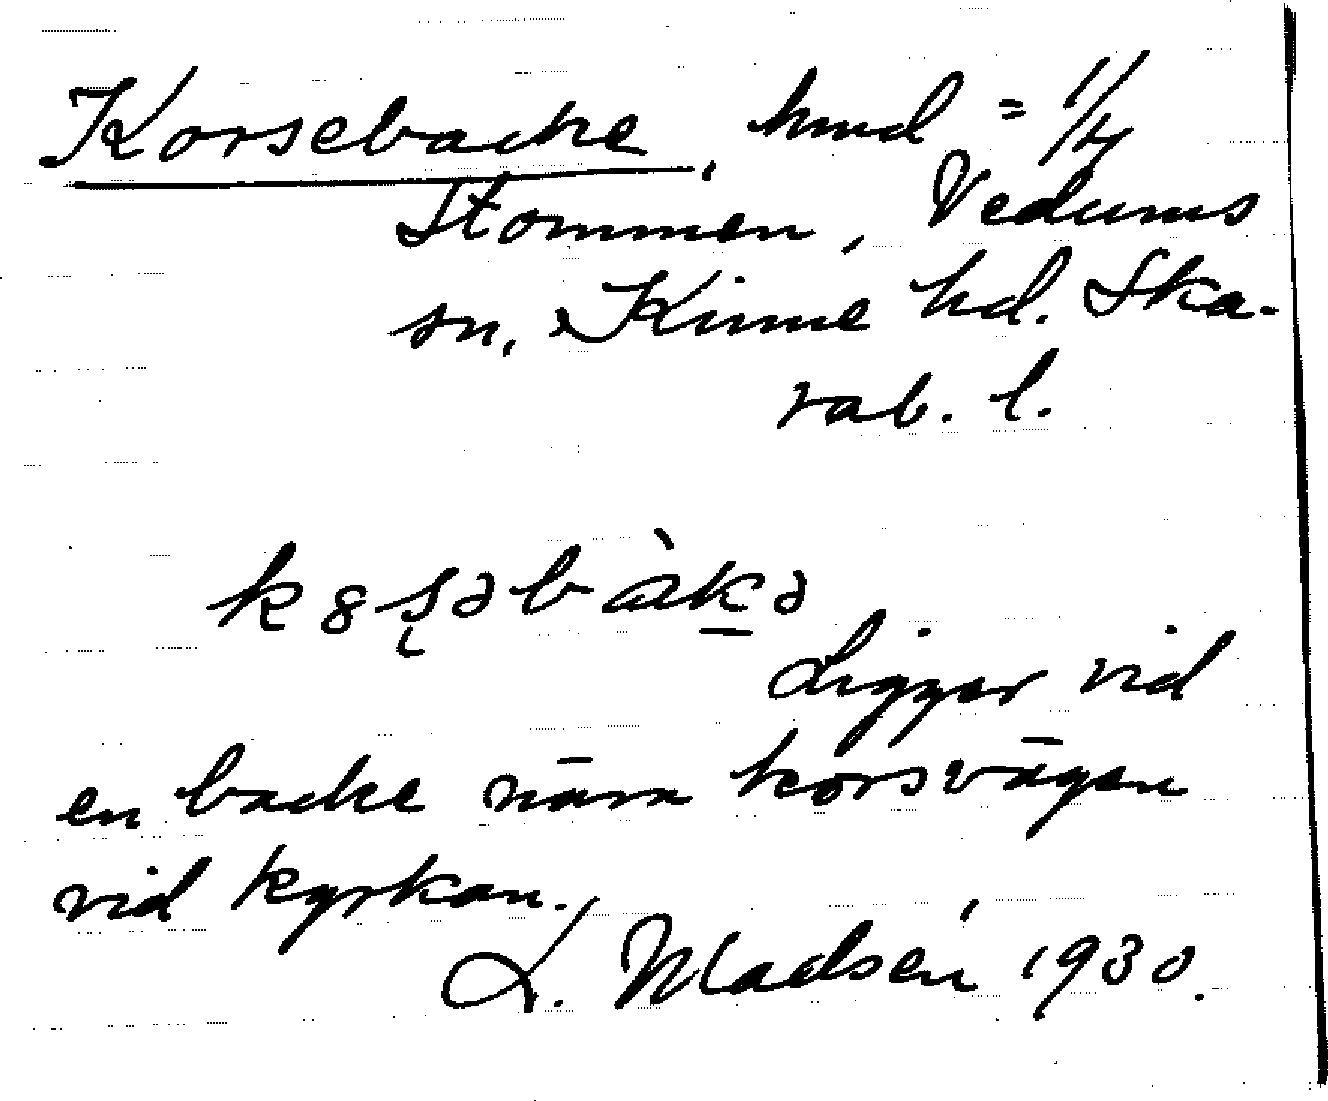 Korsebacke, hmd = 1/4
Stommen, Vedums
sn, Kinne hd. Ska-
rab. l.
k8ʂəbàkə
Ligger vid
en backe nära korsvägen
vid kyrkan.
L. Madsén 1930.